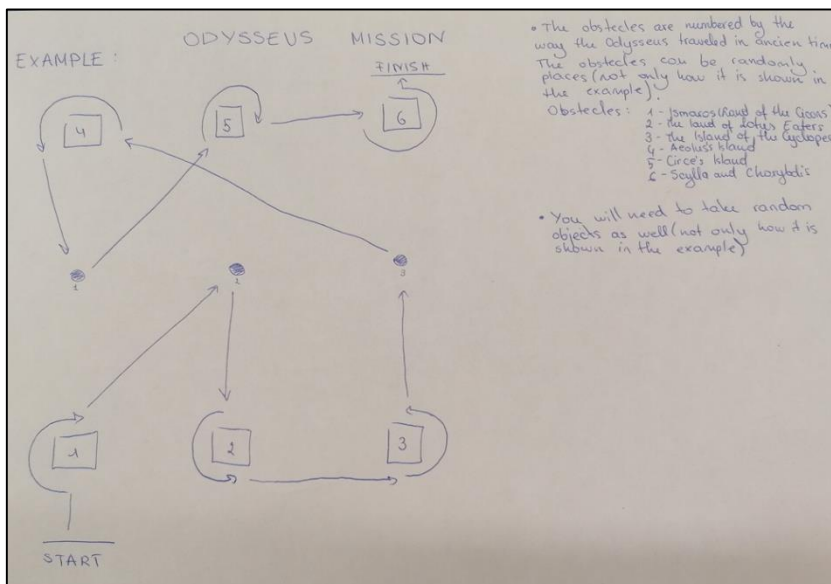 ODYSSEUS MISSION
EXAMPLE:
FINISH
4
5
6
1
1
3
1
2
3
START
• The obstecles are numbered by the
way the Odysseus traveled in ancien time
The obstecles can be randomly
places (not only how it is shown in
the example).
Obstecles: 1 - Ismaros (land of the Cicons)
2 - The land of Lotus Eaters
3 - The Island of the Cyclopes
4 - Aeolus's Island
5 - Circe's Island
6 - Scylla and Charybdis
• You will need to take random
objects as well (not only how it is
shown in the example)